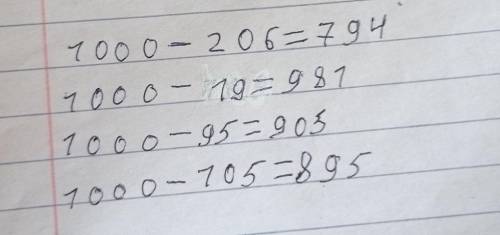 1000-206=794
1000-19=981
1000-95=905
1000-105=895